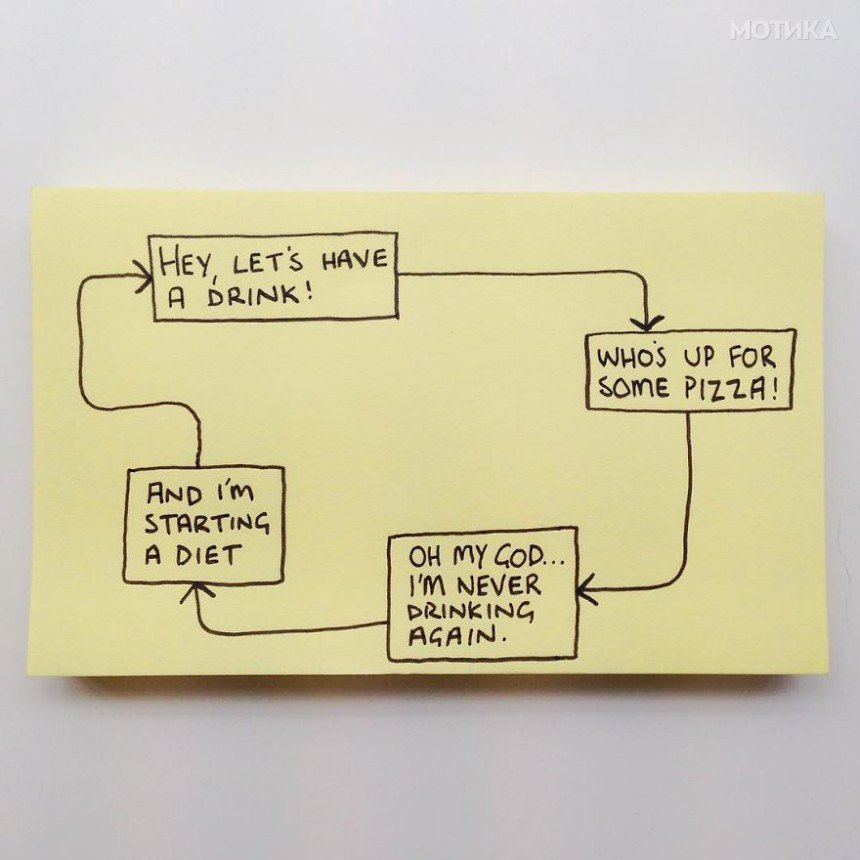 МОТИКА
HEY, LET'S HAVE
A DRINK!
WHO'S UP FOR
SOME PIZZA!
OH MY GOD...
I'M NEVER
DRINKING
AGAIN.
AND I'M
STARTING
A DIET